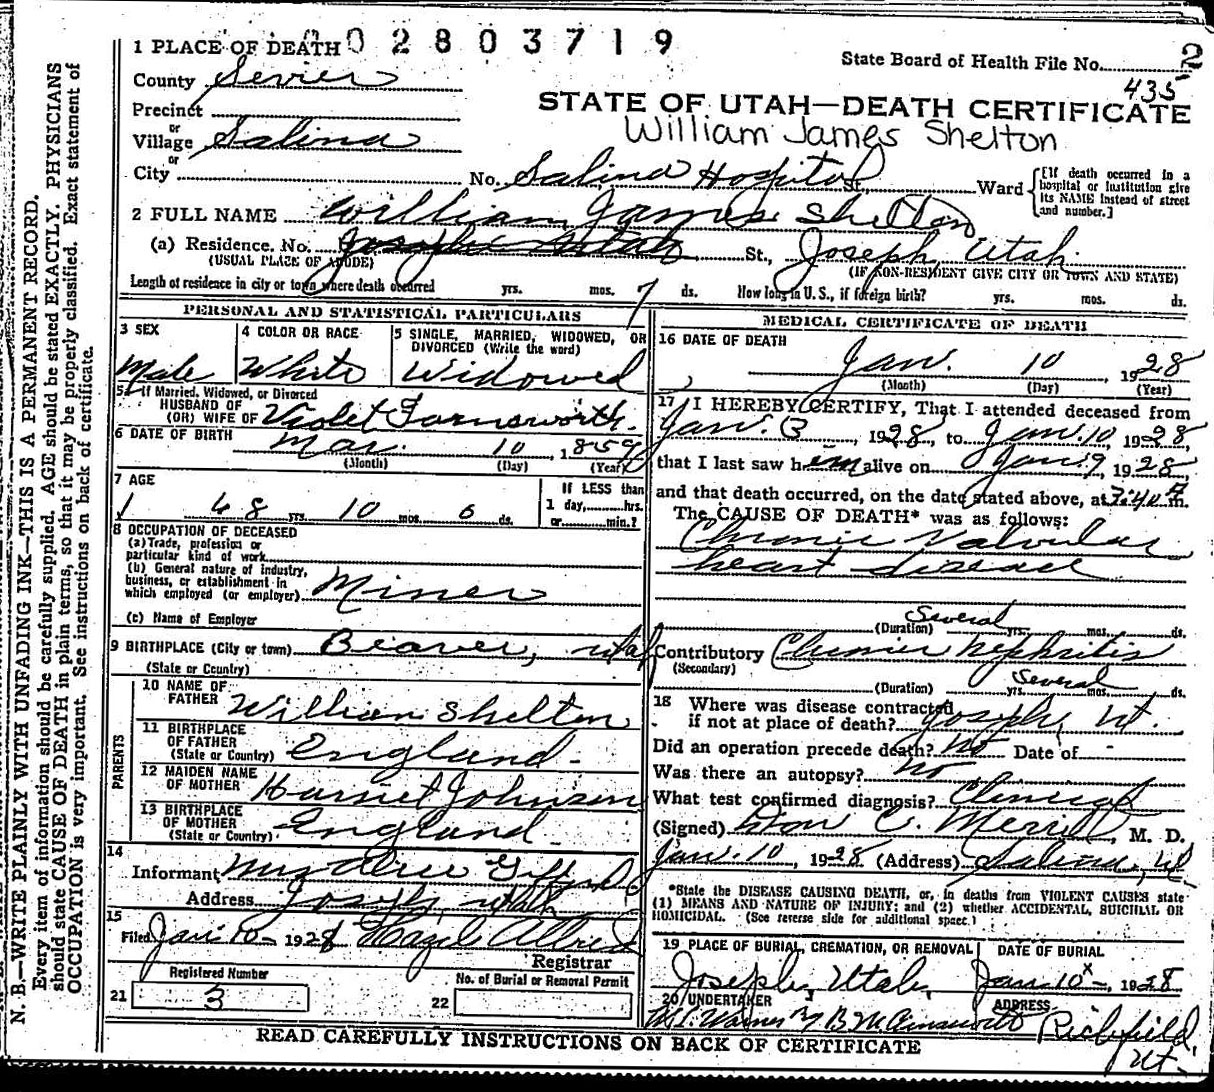 1 PLACE OF DEATH 0 0 2 8 0 3 7 1 9
State Board of Health File No. 2
County Sevier
435
Precinct
STATE OF UTAH—DEATH CERTIFICATE
or
William James Shelton
Village Salina
or
City No. Salina Hospital St., Ward
[If death occurred in a hospital or institution give its NAME instead of street and number.]
2 FULL NAME William James Shelton
(a) Residence. No. Joseph Utah St., Joseph, Utah.
(USUAL PLACE OF ABODE) (IF NON-RESIDENT GIVE CITY OR TOWN AND STATE)
Length of residence in city or town where death occurred yrs. mos. 7 ds. How long in U. S., if foreign birth? yrs. mos. ds.
PERSONAL AND STATISTICAL PARTICULARS
3 SEX
Male
4 COLOR OR RACE
White
5 SINGLE, MARRIED, WIDOWED, OR DIVORCED (Write the word)
Widowed
5a If Married, Widowed, or Divorced
HUSBAND OF
(OR) WIFE OF Violet Farnsworth.
6 DATE OF BIRTH Mar. 10, 1859
(Month) (Day) (Year)
7 AGE
68 yrs. 10 mos. 0 ds.
If LESS than
1 day, hrs.
or min.?
8 OCCUPATION OF DECEASED
(a) Trade, profession or
particular kind of work
(b) General nature of industry,
business, or establishment in
which employed (or employer) Miner
(c) Name of Employer
9 BIRTHPLACE (City or town) Beaver, Utah
(State or Country)
PARENTS
10 NAME OF
FATHER William Shelton
11 BIRTHPLACE
OF FATHER
(State or Country) England-
12 MAIDEN NAME
OF MOTHER Harriet Johnson
13 BIRTHPLACE
OF MOTHER
(State or Country) England
14
Informant Mrs
Address Joseph, Utah
15
Filed Jan. 10- 1928 Hazel Allred
Registrar
Registered Number
21 3
No. of Burial or Removal Permit
22
MEDICAL CERTIFICATE OF DEATH
16 DATE OF DEATH
Jan. 10, 1928
(Month) (Day) (Year)
17 I HEREBY CERTIFY, That I attended deceased from
Jan. 3, 1928, to Jan. 10, 1928
that I last saw him alive on Jan. 9, 1928
and that death occurred, on the date stated above, at m.
The CAUSE OF DEATH* was as follows:
Chronic Valvular
heart disease
Several
(Duration) yrs. mos. ds.
Contributory Chronic Nephritis
(Secondary)
Several
(Duration) yrs. mos. ds.
18 Where was disease contracted
if not at place of death? Joseph, Ut.
Did an operation precede death? No Date of -
Was there an autopsy? no
What test confirmed diagnosis? Clinical
(Signed) C. Merrill, M. D.
Jan. 10, 1928 (Address) Salina, Ut
*State the DISEASE CAUSING DEATH, or, in deaths from VIOLENT CAUSES state
(1) MEANS AND NATURE OF INJURY; and (2) whether ACCIDENTAL, SUICIDAL OR
HOMICIDAL. (See reverse side for additional space.)
19 PLACE OF BURIAL, CREMATION, OR REMOVAL
Joseph, Utah,
DATE OF BURIAL
Jan 10 x -, 1928
20 UNDERTAKER
ADDRESS
Richfield,
Ut-
READ CAREFULLY INSTRUCTIONS ON BACK OF CERTIFICATE
N. B.—WRITE PLAINLY WITH UNFADING INK—THIS IS A PERMANENT RECORD.
Every item of information should be carefully supplied. AGE should be stated EXACTLY. PHYSICIANS
should state CAUSE OF DEATH in plain terms, so that it may be properly classified. Exact statement of
OCCUPATION is very important. See instructions on back of certificate.